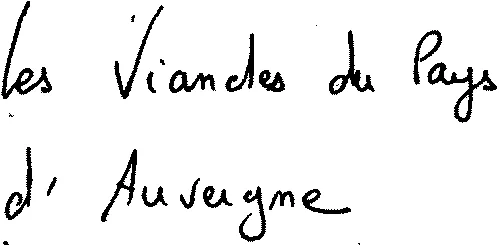 Les Viandes du Pays
d'Auvergne